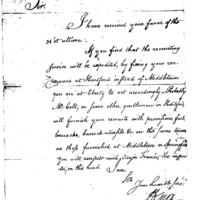 Sir,
I have received your favor of the
31st ultimo.
If you find that the recruiting
service will be expedited, by fixing your ren-
dezvous at Hartford instead of Middletown
you are at liberty to act accordingly. Probably
Mr. Colt, or some other gentleman in Hartford,
will furnish your recruits with provisions, fuel,
barracks, &c. on the same terms
as those furnished at Middletown or Springfield
You will consult with Major
on this head. I am
Sir
Your humble Serv.
H Knox